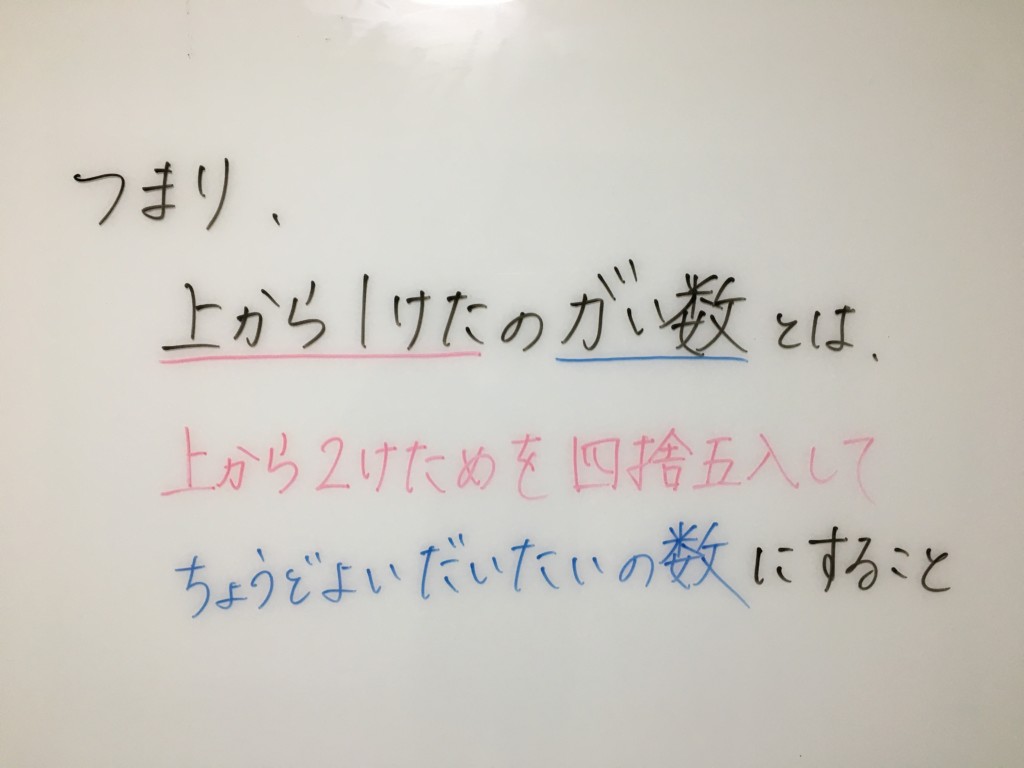 つまり、
上から1けたのがい数とは、
上から2けためを四捨五入して
ちょうどよいだいたいの数にすること